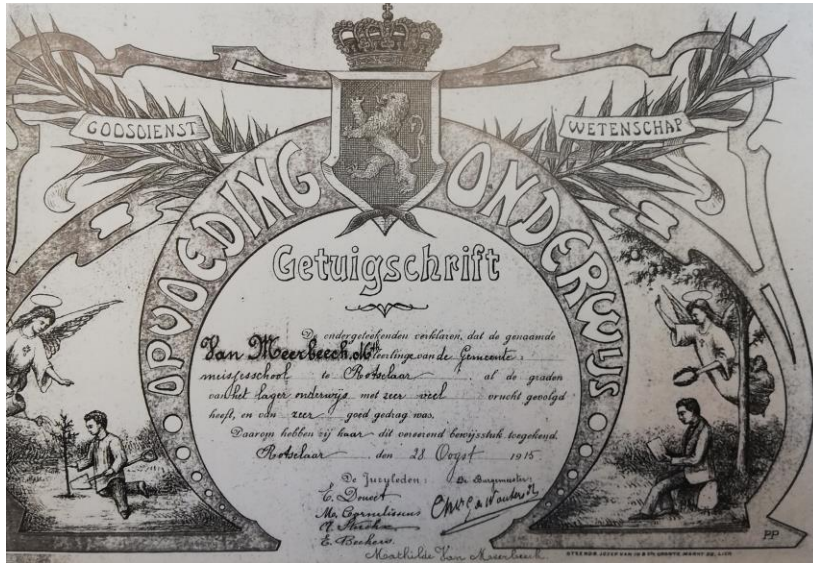 GODSDIENST
WETENSCHAP
OPVOEDING ONDERWIJS
Getuigschrift
De ondergeteekenden verklaren, dat de genaamde
Van Meerbeeck, leerlinge van de Gemeente
meisjesschool te Rotselaar al de graden
van het lager onderwijs met zeer veel vrucht gevolgd
heeft, en van zeer goed gedrag was.
Daarom hebben zij haar dit vereerend bewijsstuk toegekend.
Rotselaar den 28 Oogst 1915
De Juryleden: De Burgemeester:
E.
M. Cornelissens
E. Beckers
Mathilde Van Meerbeeck
PP